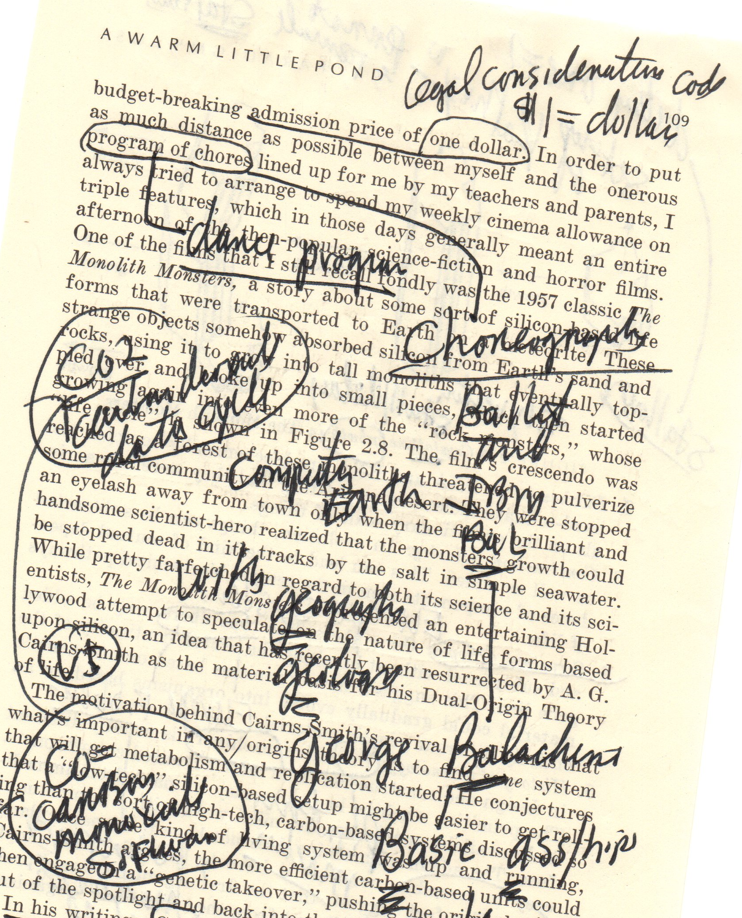 A WARM LITTLE POND
legal consideration code
$1 = dollar
109
budget-breaking admission price of one dollar. In order to put
as much distance as possible between myself and the onerous
program of chores lined up for me by my teachers and parents, I
always tried to arrange to spend my weekly cinema allowance on
triple features, which in those days generally meant an entire
afternoon of the then-popular science-fiction and horror films.
dance program
One of the films that I still recall fondly was the 1957 classic The
Monolith Monsters, a story about some sort of silicon-based life
forms that were transported to Earth meteorite. These
Choreography
strange objects somehow absorbed silicon from Earth's sand and
rocks, using it to grow into tall monoliths that eventually top-
CO2
pled over, and broke up into small pieces, then started
Ballet
growing again into even more of the "rock monsters," whose
and
"life shown in Figure 2.8. The film's crescendo was
data cycle
reached as a forest of these monoliths threatened to pulverize
Computer
Earth IBM
some rural community desert. They were stopped
an eyelash away from town only when the brilliant and
handsome scientist-hero realized that the monsters' growth could
be stopped dead in its tracks by the salt in simple seawater.
with
While pretty farfetched in regard to both its science and its sci-
entists, The Monolith Monsters presented an entertaining Hol-
geography
lywood attempt to speculate on the nature of life forms based
upon silicon, an idea that has recently been resurrected by A. G.
VS
geology
Cairns-Smith as the material basis for his Dual-Origin Theory
of life.
The motivation behind Cairns-Smith's revival that
what's important in any/origins to find some system
George Balachine
that will get metabolism and replication started. He conjectures
CO=
that a "low-tech" silicon-based setup might be easier to get roll-
carbon
ing than high-tech, carbon-based systems
monoxide
software
Basic
kind of living system was up and running,
Cairns-Smith argues, the more efficient carbon-based units could
then engage in a "genetic takeover," pushing the
out of the spotlight and back into the
In his writing